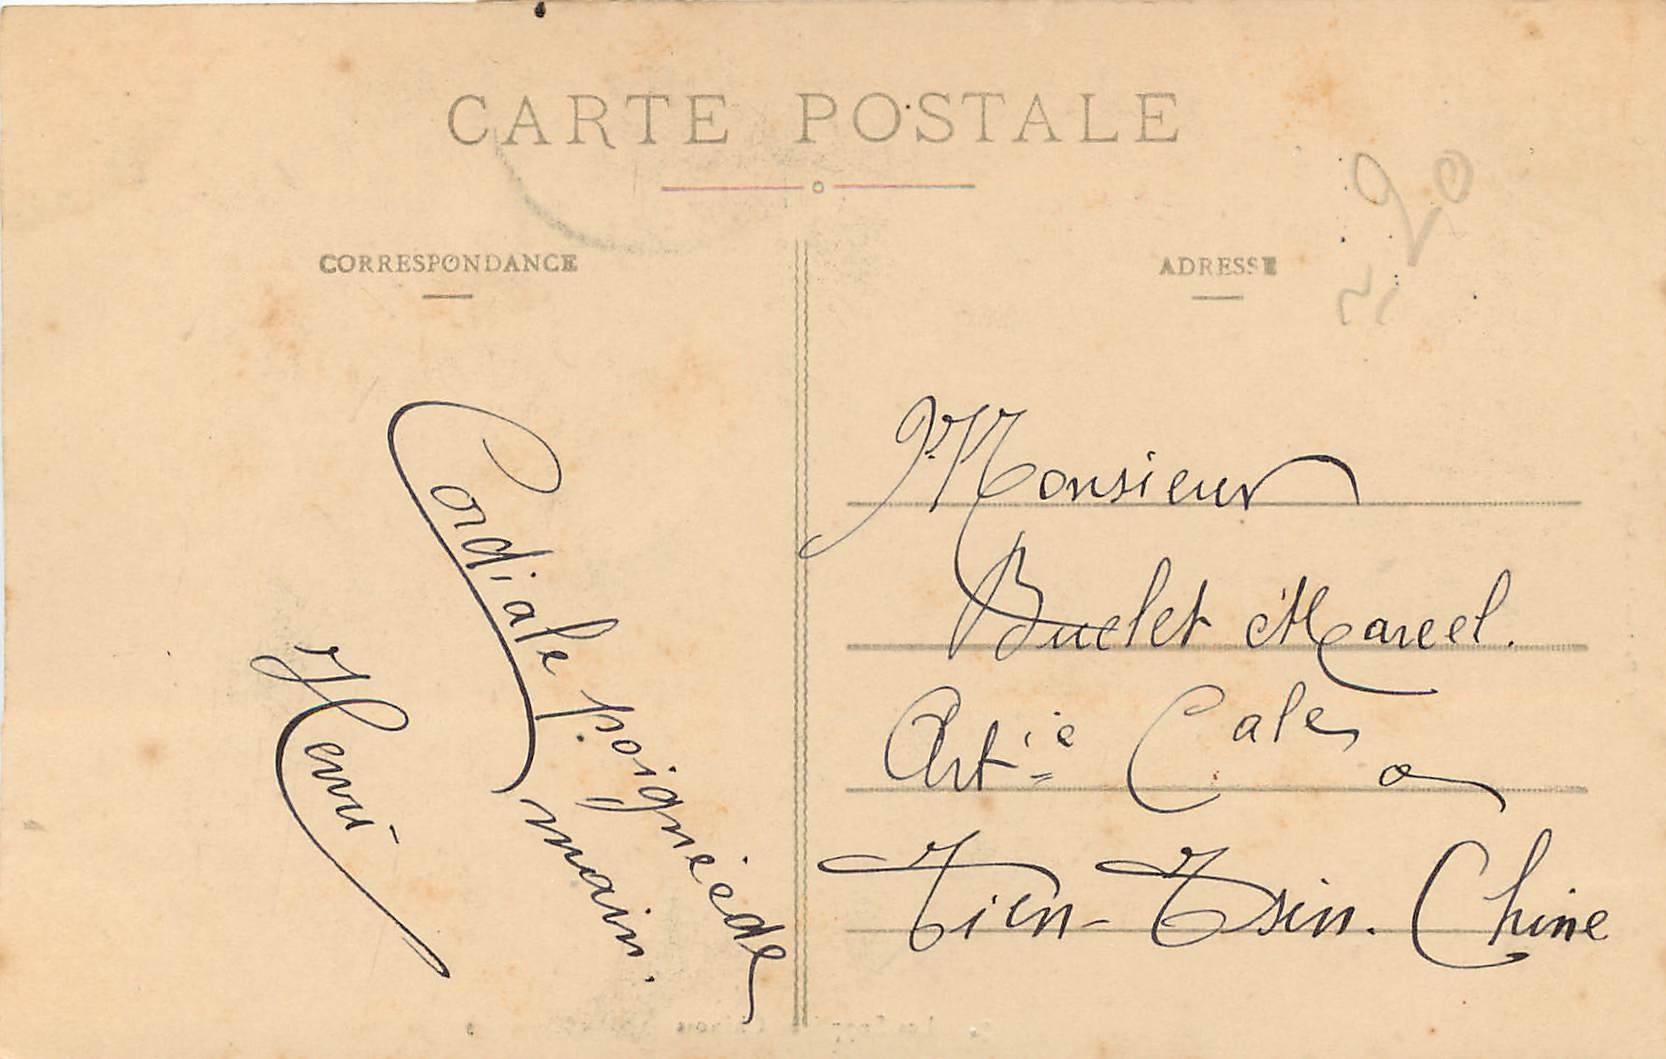 CARTE POSTALE
CORRESPONDANCE
ADRESSE
Cordiale poignée de
main.
Henri
Monsieur
Buclet Marcel.
Artie Cale
Tien-Tsin. Chine